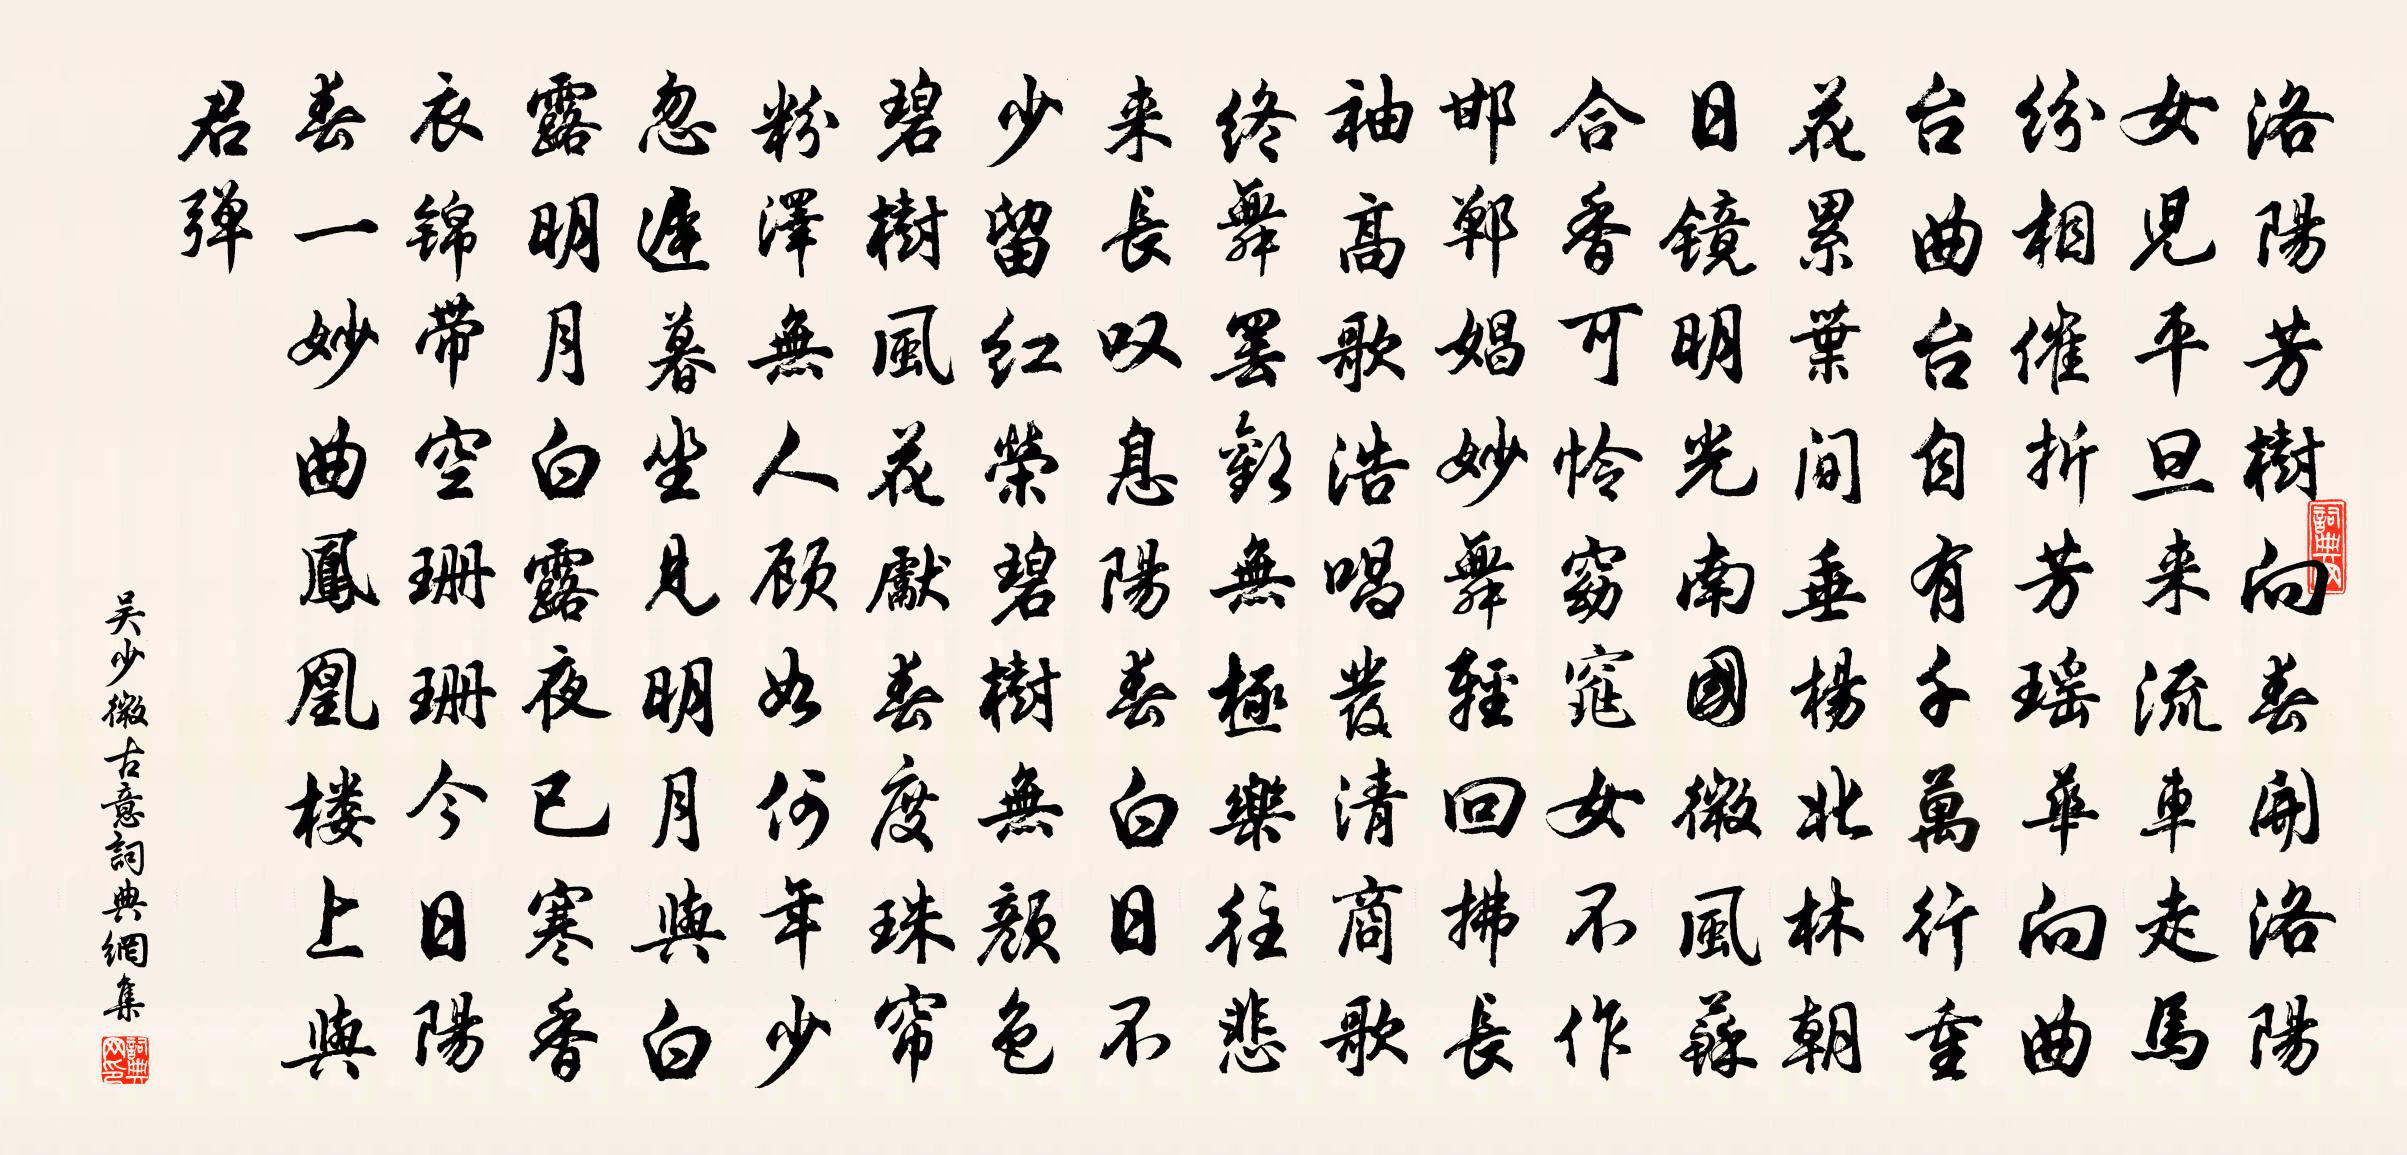 洛陽芳樹向春開洛陽
女児平旦来流車走馬
纷相催折芳瑶華向曲
台曲台自有千萬行重
花累葉间垂楊北林朝
日镜明光南國微風蘇
合香可怜窈窕女不作
邯郸娼妙舞輕回拂長
袖高歌浩唱發清商歌
终舞罢歡無極樂往悲
来長叹息陽春白日不
少留红榮碧樹無颜色
碧樹風花獻春度珠帘
粉澤無人顾如何年少
忽遅暮坐見明月與白
露明月白露夜已寒香
衣锦带空珊珊今日陽
春一妙曲鳳凰楼上與
君弹
吴少微古意詞典網集
詞典网
詞典网印